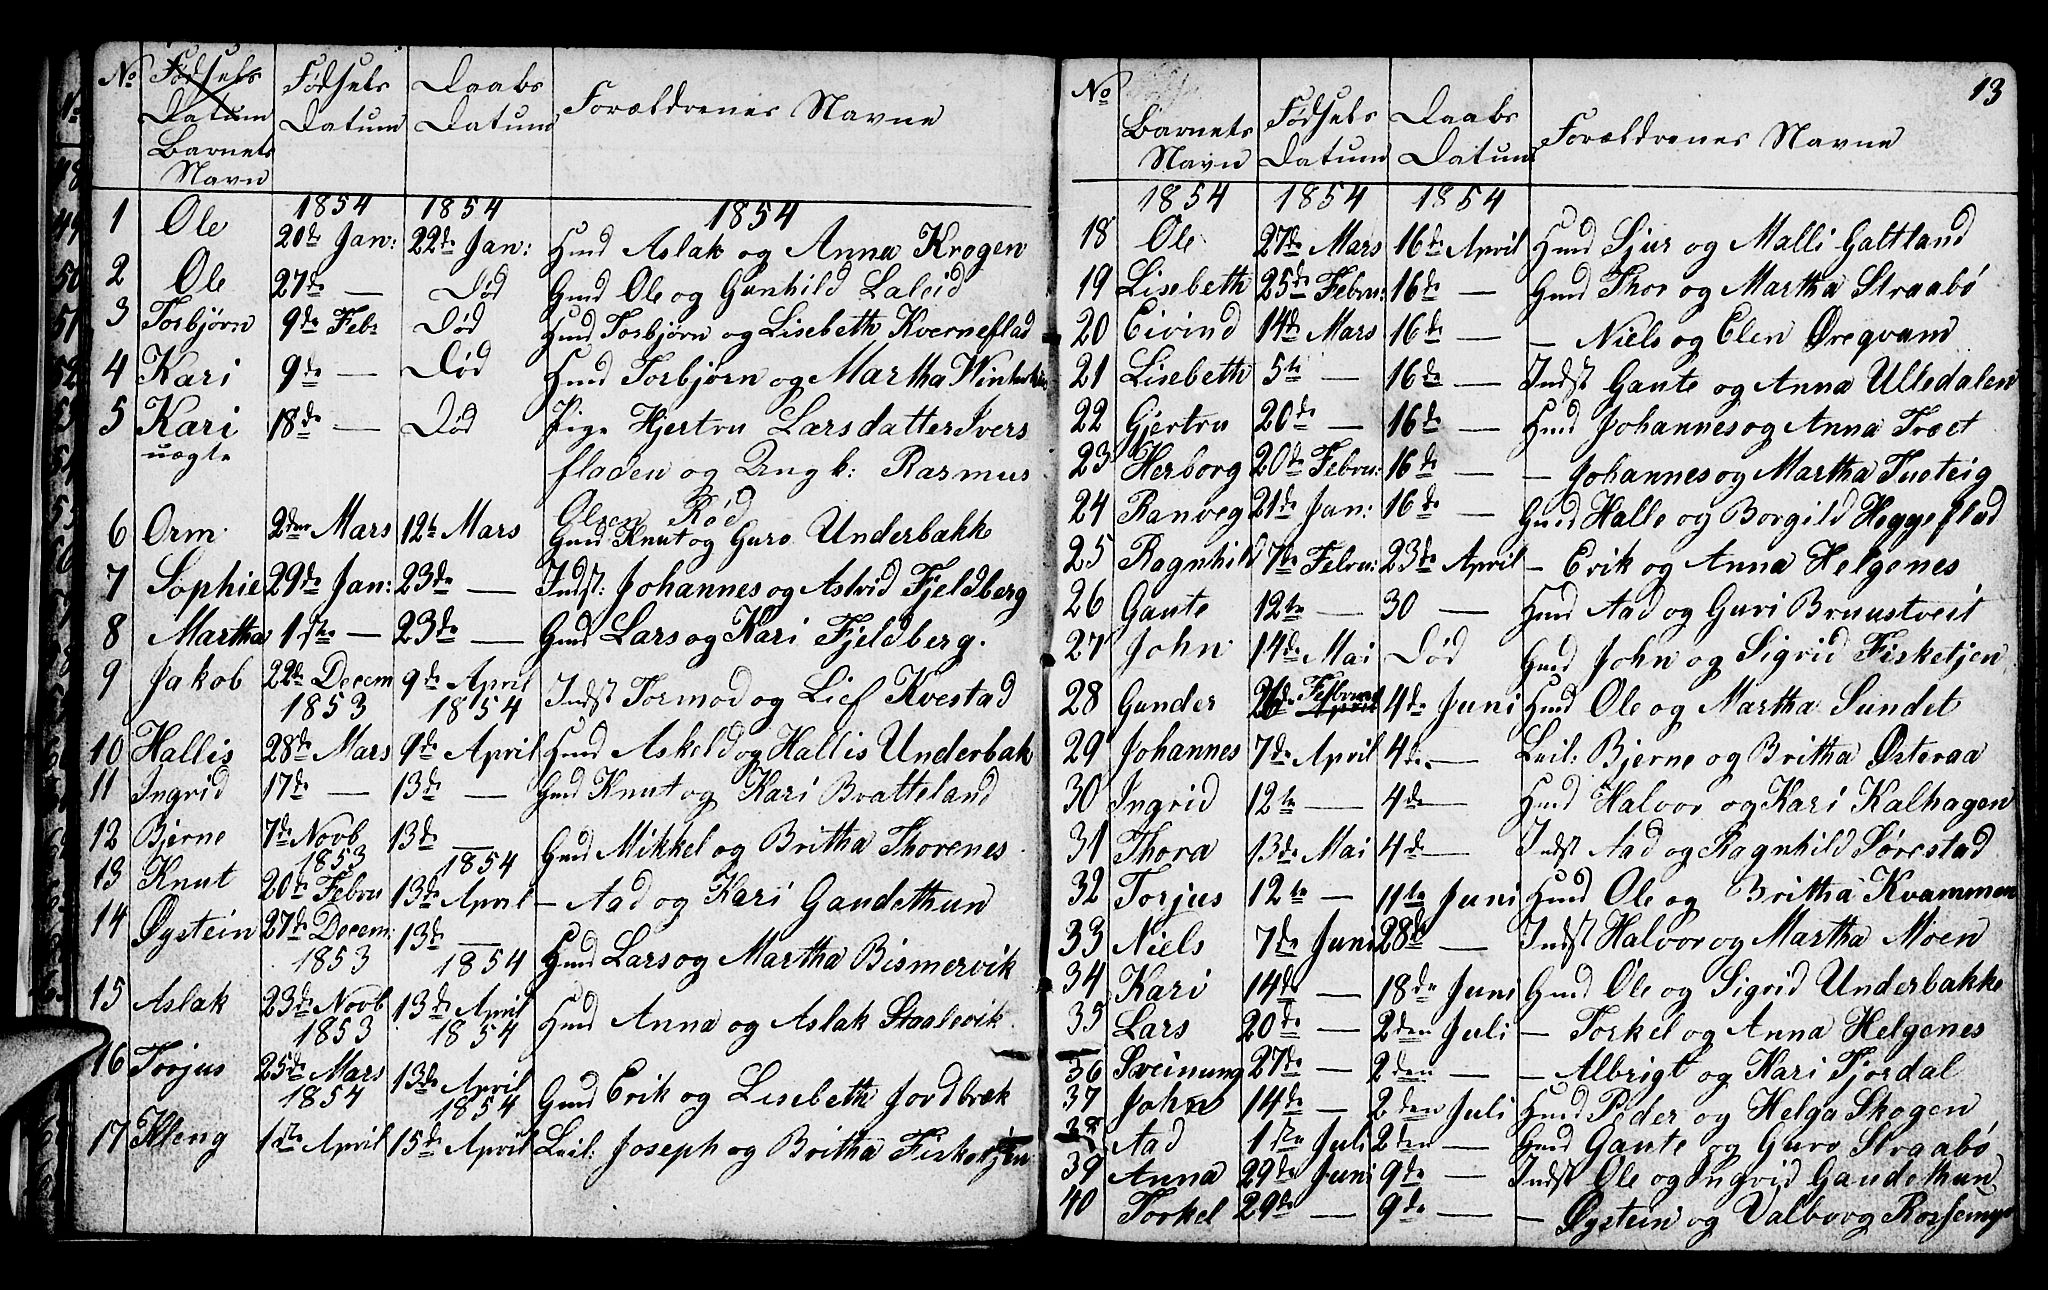 No Fødsels Datum Barnets Navn Fødsels Datum Daabs Datum Forældrenes Navne
1854 1854 1854
1 Ole 20de Jan: 22de Jan: Gmd Aslak og Anna Krogen
2 Ole 27de — Død Gmd Ole og Gunhild Laleid
3 Torbjørn 9de Feb: Død Gmd Torbjørn og Lisebeth Kverneflad
4 Kari 9de — Død Gmd Torbjørn og Martha
5 Kari 18de — Død Pige Hjertru Larsdatter Ivers
uægte fladen og Ungk: Rasmus
Olsen Rød
6 Orm 2den Mars 12te Mars Gmd Knut og Guro Underbakke
7 Sophie 29de Jan: 23de — Indst: Johannes og Astrid Fjeldberg
8 Martha 1ste — 23de — Gmd Lars og Kari Fjeldberg.
9 Jakob 22de Decem 9de April Indst Tormod og Lief Kvestad
1853 1854
10 Hallis 28de Mars 9de April Gmd Askeld og Hallis Underbak
11 Ingrid 17de — 13de — Gmd Knut og Kari Bratteland
12 Bjerne 7de Novb 13de — Gmd Mikkel og Britha Thorenes
1853 1854
13 Knut 20de Febru 13de April — Aad og Kari Gaudethun
14 Øystein 27de Decem: 13de — Gmd Lars og Martha Bismervik
1853 1854
15 Aslak 23de Novb 13de April Gmd Anna og Aslak Staalevik
1853 1854
16 Torjus 25de Mars 13de April Gmd Erik og Lisebeth Jordbræk
1854 1854
17 Kleng 1ste April 15de April Leil: Joseph og Britha Fisketjen
13
No Barnets Navn Fødsels Datum Daabs Datum Forældrenes Navne
1854 1854 1854
18 Ole 27de Mars 16de April Gmd Sjur og Malli Galtland
19 Lisebeth 25de Febru: 16de — Gmd Thor og Martha Straabø
20 Eivind 14de Mars 16de — — Niels og Elen Øreqvam
21 Lisebeth 5te — 16de — Indst Gaute og Anna Ulledalen
22 Gjertru 20de — 16de — Gmd Johannes og Anna Troet
23 Herborg 20de Febru: 16de — — Johannes og Martha Tueteig
24 Ranveg 21de Jan: 16de — Gmd Halle og Borgild Heggeflad
25 Ragnhild 7de Febru: 23de April — Erik og Anna Helgenes
26 Gaute 12te — 30 — Gmd Aad og Guri Bruustveit
27 John 14de Mai Død Gmd John og Sigrid Fisketjen
28 Gunder 26de Februar April 4de Juni Gmd Ole og Martha Sundet
29 Johannes 7de April 4de — Leil: Bjerne og Britha Østeraa
30 Ingrid 12te — 4de — Gmd Halvor og Kari Kalhagen
31 Thora 13de Mai 4de — Indst Aad og Ragnhild Sørestad
32 Torjus 12te — 11te Juni Gmd Ole og Britha Kvammen
33 Niels 7de Juni 28de — Indst Halvor og Martha Moen
34 Kari 14de — 18de Juni Gmd Ole og Sigrid Underbakke
35 Lars 20de — 2den Juli — Torkel og Anna Helgenes
36 Sveinung 27de — 2den — — Albrigt og Kari Fjordal
37 John 14de — 2den Juli Gmd Peder og Helga Skogen
38 Aad 1ste Juli 2den — Gmd Gaute og Guro Straabø
39 Anna 29de Juni 9de — Indst Ole og Ingrid Gaudethun
40 Torkel 29de — 9de — — Øystein og Valborg Rossemyr